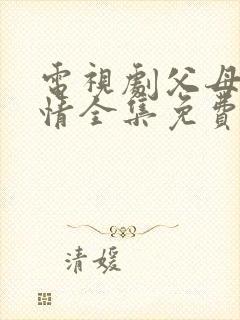 電視劇父母
情全集免費
清媛